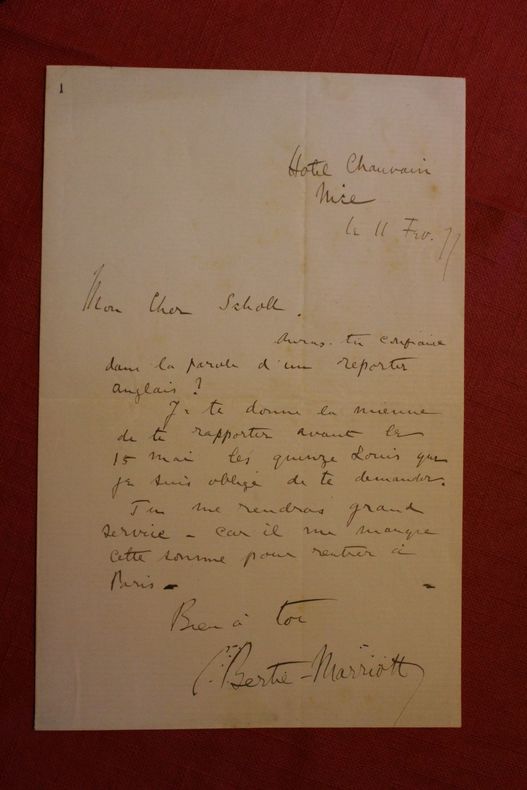 1
Hotel Chauvain
Nice
le 11 Fev. 77
Mon Cher Scholl.
Auras-tu confiance
dans la parole d'un reporter
anglais ?
Je te donne la mienne
de te rapporter avant le
15 mai les quinze Louis que
je suis obligé de te demander.
Tu me rendras grand
service - car il me manque
cette somme pour rentrer à
Paris -
Bien à toi
Bertie-Marriott